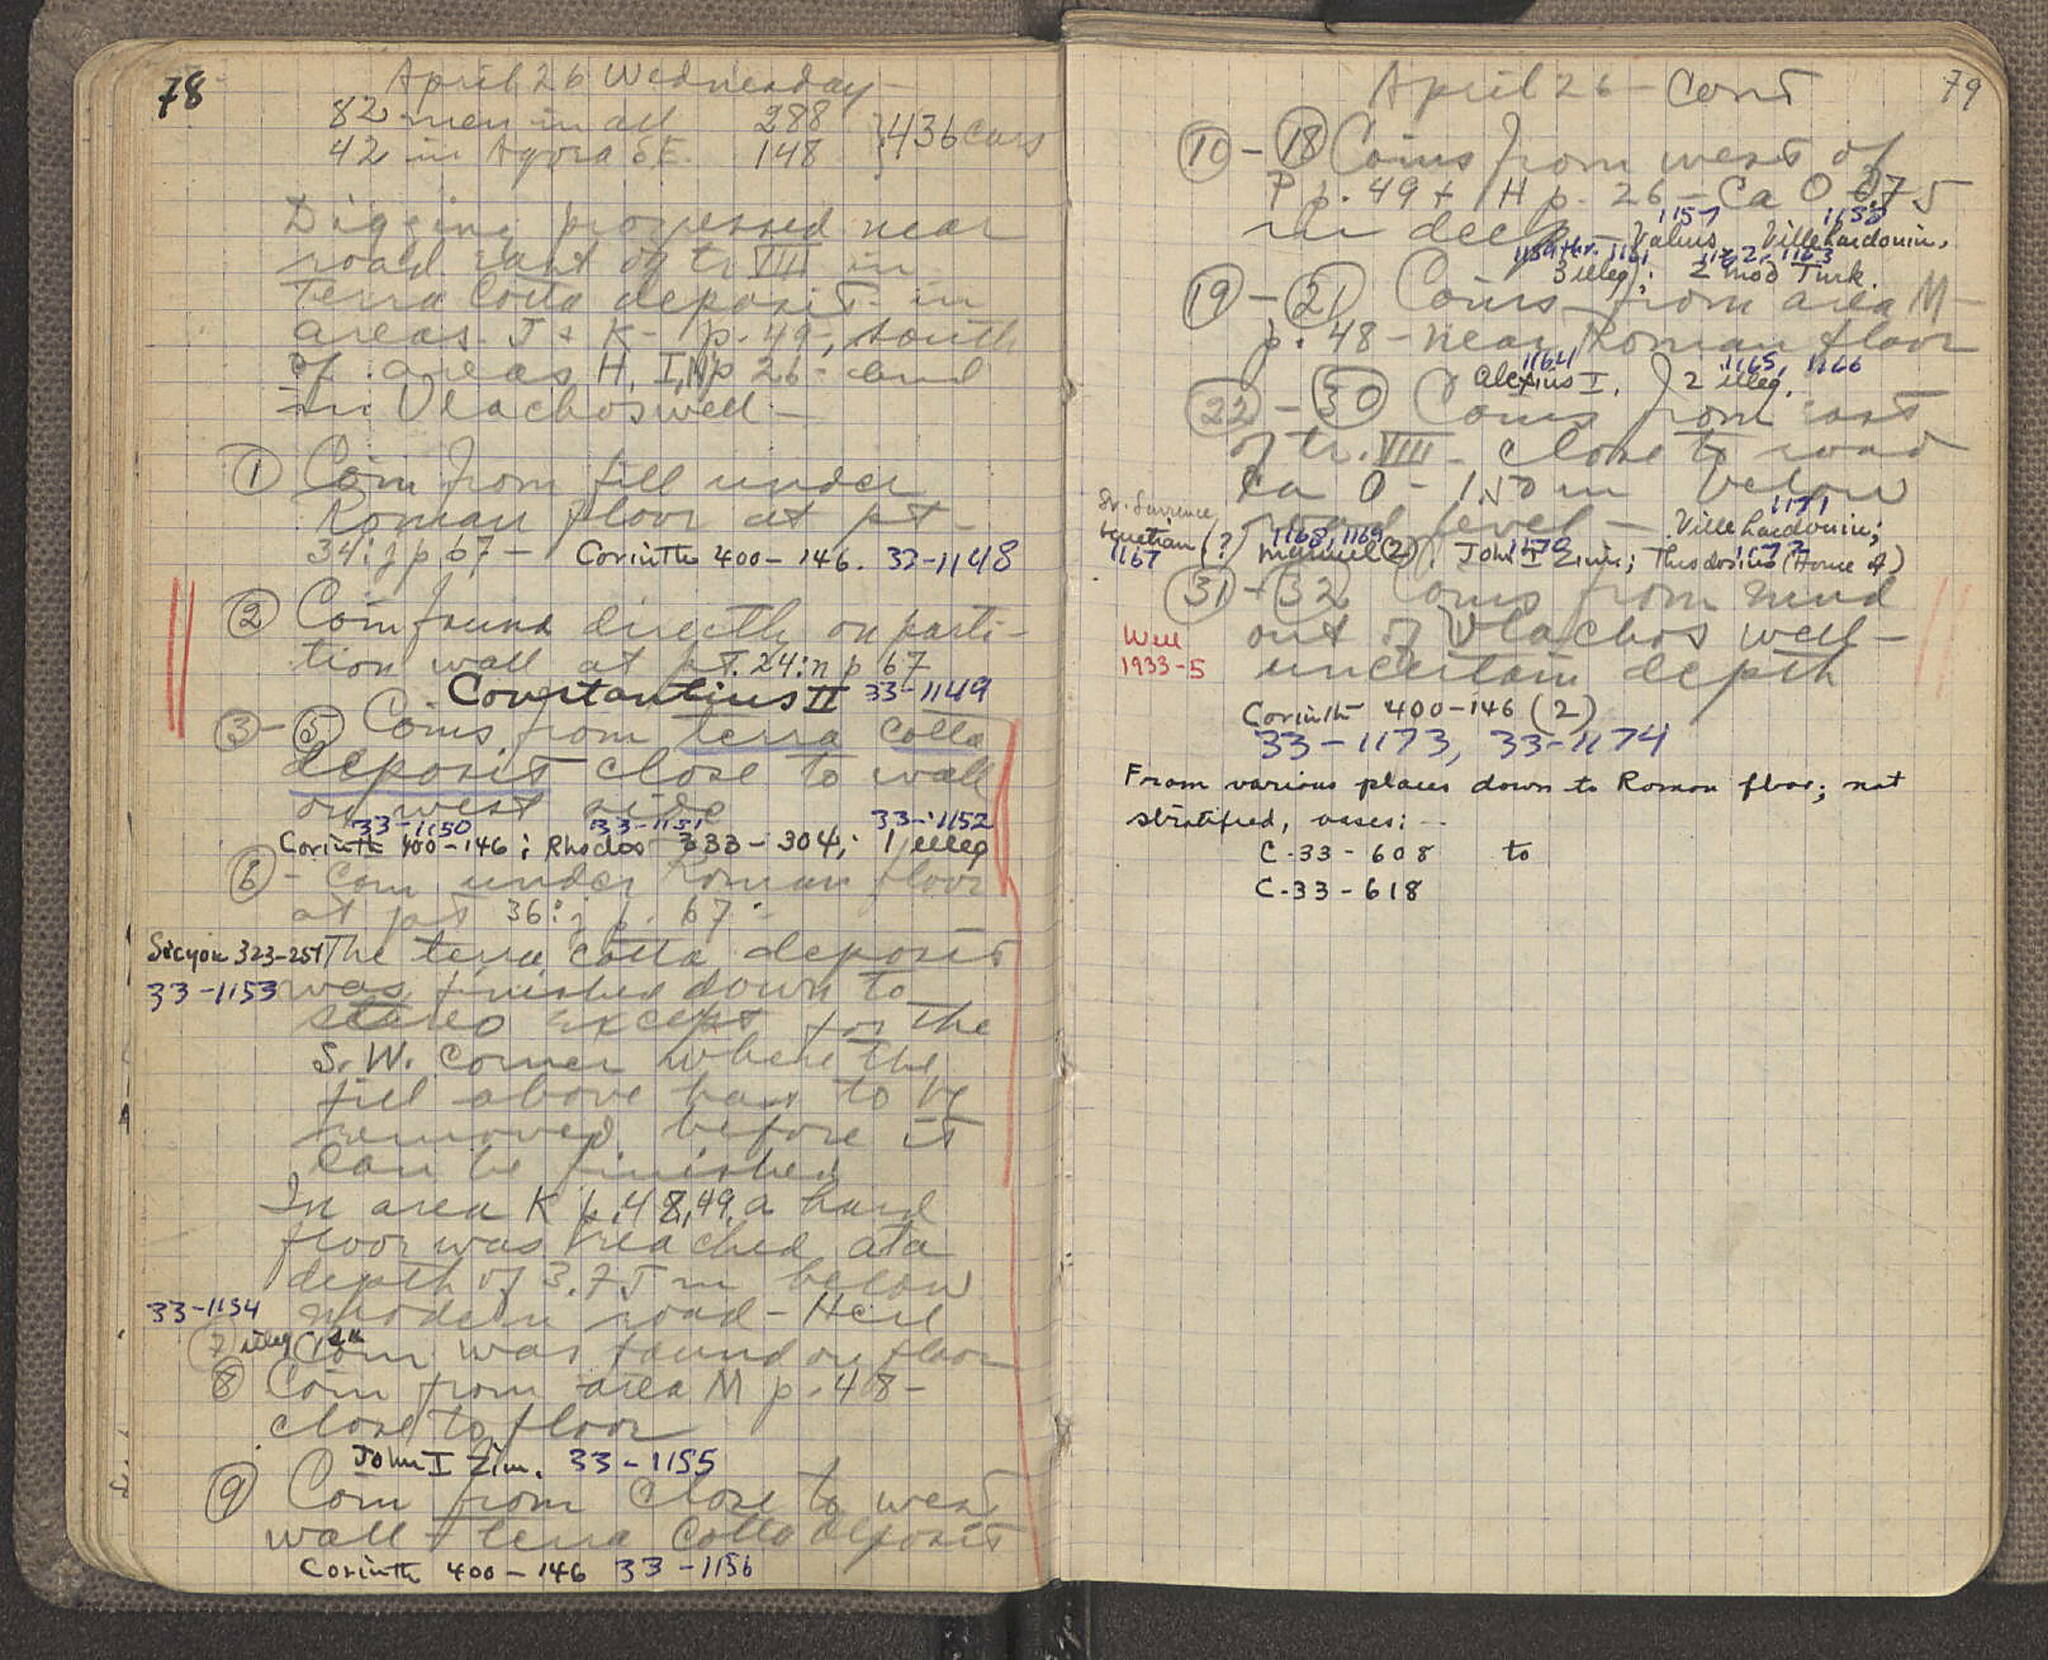 78
April 26 Wednesday -
82 men in all 288
42 in Agora S.E. 148 } 436 cars
Digging progressed near
road east of tr VIII in
Terra Cotta deposit in
areas J + K - p. 49, south
of areas H, I, N p 26 - and
in Vlachos well -
① Coin from fill under
Roman floor at pt -
34:j p 67 - Corinth 400-146. 33-1148
② Coin found directly on parti-
tion wall at pt. 24:n p 67
Constantius II 33-1149
③-⑤ Coins from terra cotta
deposit close to wall
on west side
33-1150 33-1151 33-1152
Corinth 400-146; Rhodes 333-304; 1 illeg
⑥ - Coin under Roman floor
at pt 36:j p. 67 -
Sicyon 323-251 The terra cotta deposit
33-1153 was finished down to
stereo except for the
S.W. corner where the
fill above has to be
removed before it
can be finished
In area K p. 48, 49, a hard
floor was reached at a
depth of 3.75 m below
33-1154 modern road - Here
⑦ illeg Coin was found on floor
⑧ Coin from area M p. 48 -
close to floor
John I Zim. 33-1155
⑨ Coin from close to west
wall - terra cotta deposit
Corinth 400-146 33-1156
April 26 - Cont 79
⑩-⑱ Coins from west of
P p. 49 + H p. 26 - Ca 0.75
1157 1158
m deep - Valens, Villehardouin,
1159 thr. 1161 1162, 1163
3 illeg; 2 mod Turk.
⑲-㉑ Coins from area M -
p. 48 - near Roman floor
1164 1165, 1166
Alexius I, 2 illeg.
㉒-㉚ Coins from east
of tr. VIII - close to road
Ca 0 - 1.50 m below
1171
road level - Villehardouin;
Venetian (?) 1168, 1169 1170 1172
1167 Manuel (2), John I Zim; Theodosius (House of)
㉛-㉜ Coins from mud
out of Vlachos well -
Well
1933-5
uncertain depth
Corinth 400-146 (2)
33-1173, 33-1174
From various places down to Roman floor; not
stratified, vases: --
C-33-608 to
C-33-618